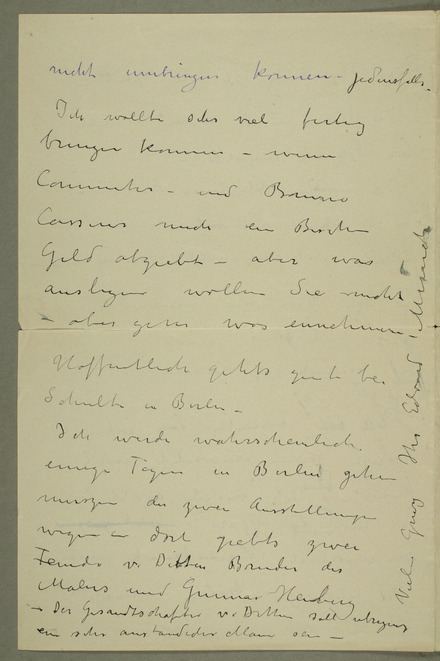 nicht umbringen können – jedenfalls –
Ich wollte sehr viel fertig
bringen können – wenn
Commeter – und Bruno
Cassirer mich ein Bischen
Geld abgiebt – aber was
auslegen wollen Sie nicht
– aber gern was einnehmen –
Hoffentlich gehts gut bei
Schulte in Berlin –
Ich werde wahrscheinlich
einige Tagen in Berlin gehen
müszen die zwei Ausstellungen
wegen – dort giebts zwei
Feinde v. Ditten Bruder des
Malers und Gunnar Heiberg
– Der Gesandtschafter v. Ditten soll übrigens
ein sehr anständider Mann sein –
Vielen Grusz Ihr Edvard Munch